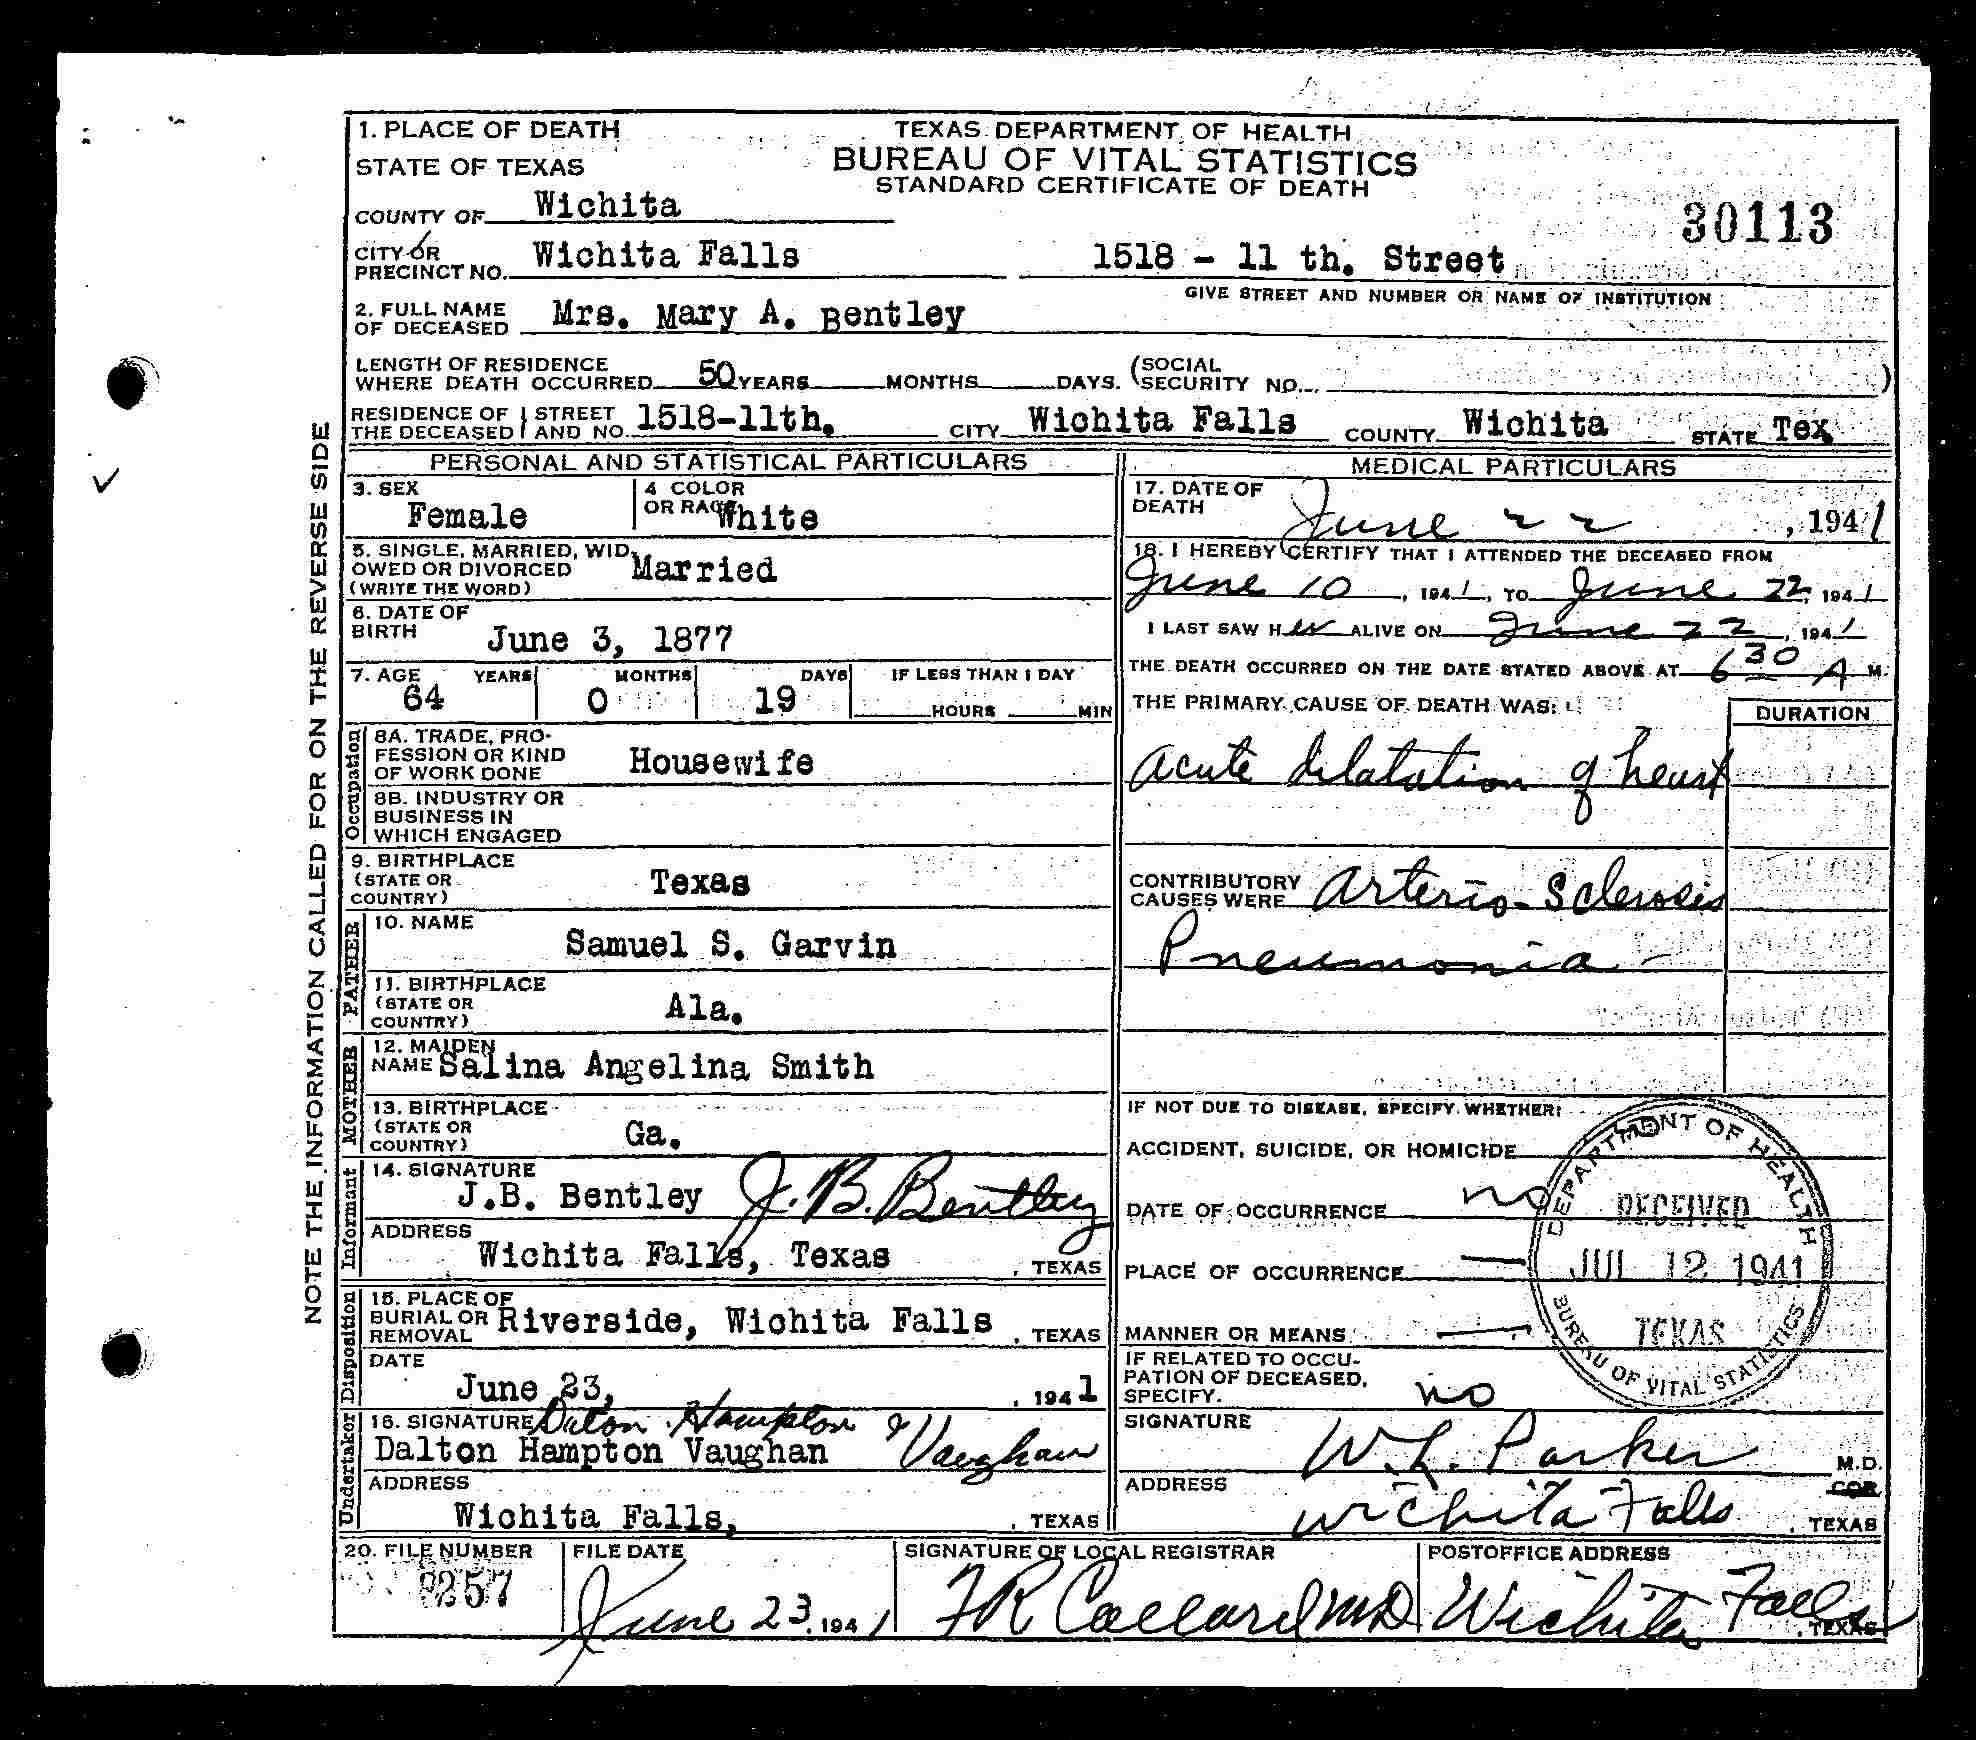 1. PLACE OF DEATH
STATE OF TEXAS
TEXAS DEPARTMENT OF HEALTH
BUREAU OF VITAL STATISTICS
STANDARD CERTIFICATE OF DEATH
30113
COUNTY OF Wichita
CITY OR PRECINCT NO. Wichita Falls 1518 - 11 th. Street
GIVE STREET AND NUMBER OR NAME OF INSTITUTION
2. FULL NAME OF DECEASED Mrs. Mary A. Bentley
LENGTH OF RESIDENCE WHERE DEATH OCCURRED 50 YEARS MONTHS DAYS. (SOCIAL SECURITY NO. )
RESIDENCE OF THE DECEASED STREET AND NO. 1518-11th. CITY Wichita Falls COUNTY Wichita STATE Tex
PERSONAL AND STATISTICAL PARTICULARS
3. SEX Female
4 COLOR OR RACE White
5. SINGLE, MARRIED, WIDOWED OR DIVORCED (WRITE THE WORD) Married
6. DATE OF BIRTH June 3, 1877
7. AGE YEARS MONTHS DAYS IF LESS THAN 1 DAY
64 0 19 HOURS MIN
Occupation
8A. TRADE, PROFESSION OR KIND OF WORK DONE Housewife
8B. INDUSTRY OR BUSINESS IN WHICH ENGAGED
9. BIRTHPLACE (STATE OR COUNTRY) Texas
FATHER
10. NAME Samuel S. Garvin
11. BIRTHPLACE (STATE OR COUNTRY) Ala.
MOTHER
12. MAIDEN NAME Salina Angelina Smith
13. BIRTHPLACE (STATE OR COUNTRY) Ga.
Informant
14. SIGNATURE J.B. Bentley J. B. Bentley
ADDRESS Wichita Falls, Texas , TEXAS
Disposition
15. PLACE OF BURIAL OR REMOVAL Riverside, Wichita Falls , TEXAS
DATE June 23, , 1941
Undertaker
16. SIGNATURE Dalton Hampton & Vaughan
Dalton Hampton Vaughan
ADDRESS Wichita Falls, , TEXAS
MEDICAL PARTICULARS
17. DATE OF DEATH June 22 , 1941
18. I HEREBY CERTIFY THAT I ATTENDED THE DECEASED FROM
June 10 , 1941, TO June 22, 1941
I LAST SAW Her ALIVE ON June 22, 1941
THE DEATH OCCURRED ON THE DATE STATED ABOVE AT 6 30 A M.
THE PRIMARY CAUSE OF DEATH WAS: DURATION
acute dilatation of heart
CONTRIBUTORY CAUSES WERE Arterio-Sclerosis
Pneumonia
IF NOT DUE TO DISEASE, SPECIFY WHETHER:
ACCIDENT, SUICIDE, OR HOMICIDE no
DATE OF OCCURRENCE no
PLACE OF OCCURRENCE
MANNER OR MEANS
IF RELATED TO OCCUPATION OF DECEASED, SPECIFY. no
SIGNATURE W. L. Parker M.D.
COR
ADDRESS Wichita Falls , TEXAS
DEPARTMENT OF HEALTH
RECEIVED
JUL 12 1941
TEXAS
BUREAU OF VITAL STATISTICS
20. FILE NUMBER 257
FILE DATE June 23, 1941
SIGNATURE OF LOCAL REGISTRAR F R Collard MD
POSTOFFICE ADDRESS Wichita Falls , TEXAS
NOTE THE INFORMATION CALLED FOR ON THE REVERSE SIDE